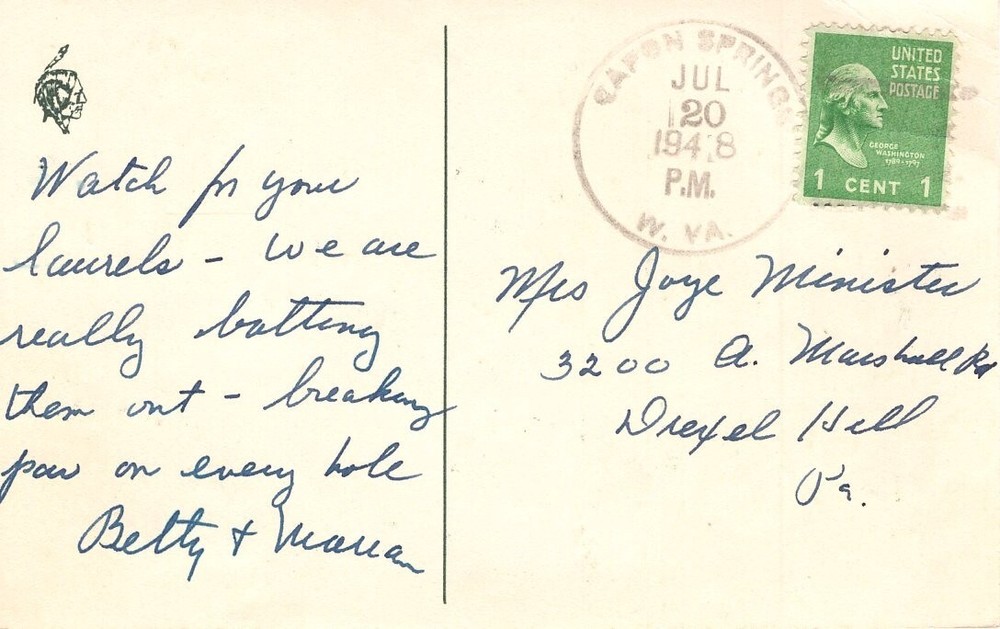 Watch for your
laurels - we are
really batting
them out - breaking
par on every hole
Betty & Marian
CAPON SPRINGS
JUL
20
1948
P.M.
W. VA.
UNITED
STATES
POSTAGE
GEORGE
WASHINGTON
1789-1797
1 CENT 1
Mrs Joye Minister
3200 A. Marshall Rd
Drexel Hill
Pa.